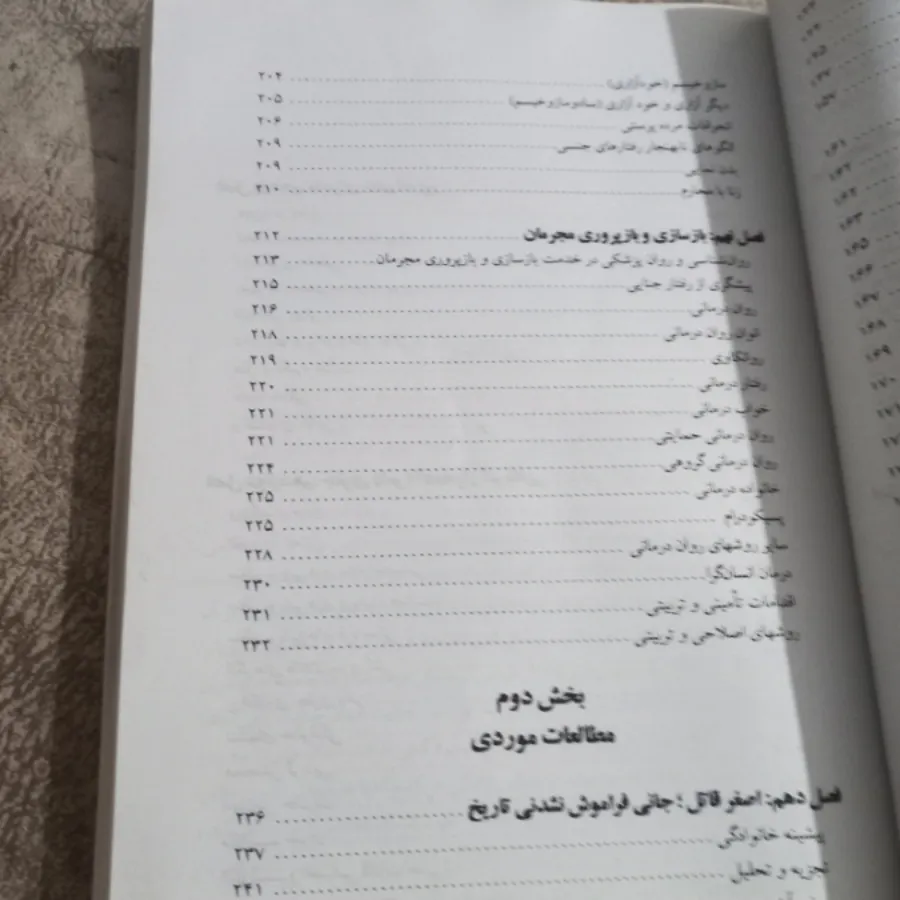 مازوخیسم (خودآزاری) ........ ۲۰۴
دیگر آزاری و خود آزاری (سادومازوخیسم) ........ ۲۰۵
انحرافات مرده پرستی ........ ۲۰۶
الگوهای نابهنجار رفتارهای جنسی ........ ۲۰۹
........ ۲۰۹
زنا با محارم ........ ۲۱۰
فصل نهم: بازسازی و بازپروری مجرمان ........ ۲۱۲
روان‌شناسی و روان پزشکی در خدمت بازسازی و بازپروری مجرمان ........ ۲۱۳
پیشگری از رفتار جنایی ........ ۲۱۵
روان درمانی ........ ۲۱۶
توان روان درمانی ........ ۲۱۸
روانکاوی ........ ۲۱۹
رفتار درمانی ........ ۲۲۰
خواب درمانی ........ ۲۲۱
روان درمانی حمایتی ........ ۲۲۱
روان درمانی گروهی ........ ۲۲۴
خانواده درمانی ........ ۲۲۵
پسیکودرام ........ ۲۲۵
سایر روشهای روان درمانی ........ ۲۲۸
درمان انسان‌گرا ........ ۲۳۰
اقدامات تأمینی و تربیتی ........ ۲۳۱
روشهای اصلاحی و تربیتی ........ ۲۳۲
بخش دوم
مطالعات موردی
فصل دهم: اصغر قاتل؛ جانی فراموش نشدنی تاریخ ........ ۲۳۶
پیشینه خانوادگی ........ ۲۳۷
تجزیه و تحلیل ........ ۲۴۱
۱۶۱
۱۶۲
۱۶۲
۱۶۳
۱۶۵
۱۶۶
۱۶۷
۱۶۸
۱۶۹
۱۷۰